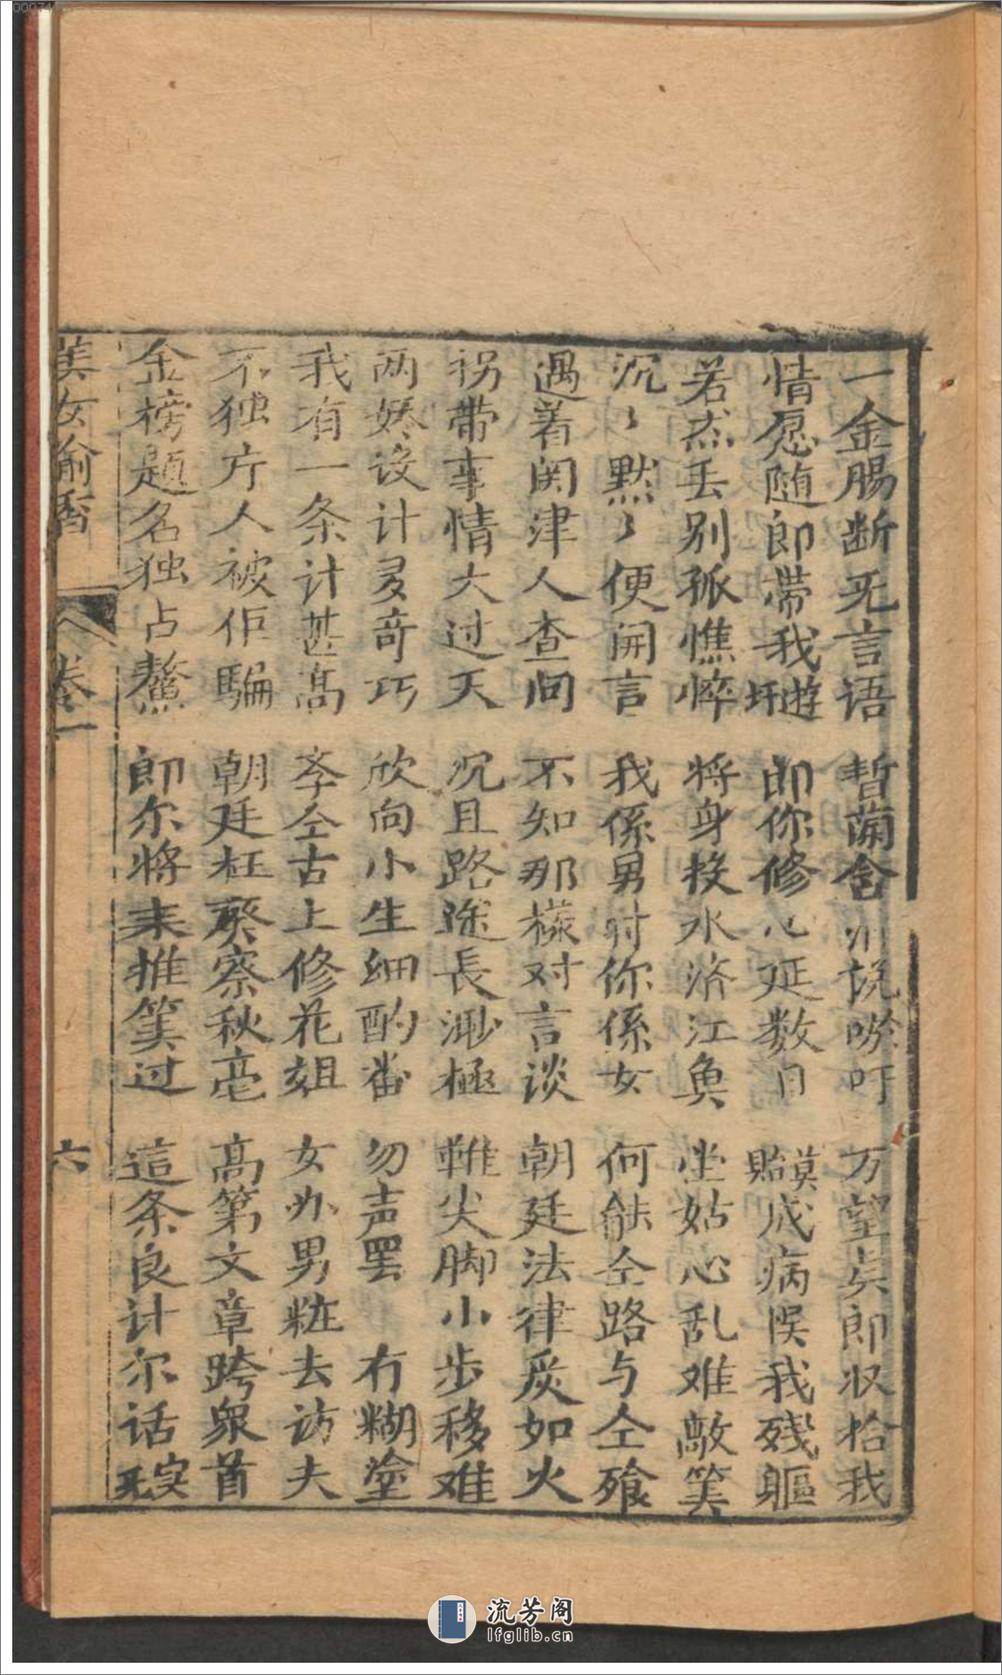 一金腸断旡言语 暂 舍 说 吩 吁 万望 郎収拾我
情愿随郎带我遊 即你修 延数日 成病 我残軀
若 丢别孤憔悴 将身投水 江魚 姑心乱难敵筭
沉〻默〻便開言 我係男 你係女 何能仝路与仝飱
遇着関津人查问 不知那樣对言谈 朝廷法律炭如火
拐带事情大过天 况且路途長 極 鞋尖脚小步移难
两 设计 奇巧 欣向小生细酌 勿声罢 冇糊塗
我有一条计甚高 李仝古上修花姐 女办男粧去访夫
不独 人被佢騙 朝廷枉 察秋毫 高第文章跨衆首
金榜题名独占鰲 郎尔将来推筭过 這条良计尔话 旡
美女喻香 卷一 六
流芳阁
lfglib.cn